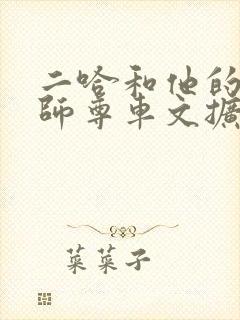 二哈和他的
師尊車文擴
菜菜子